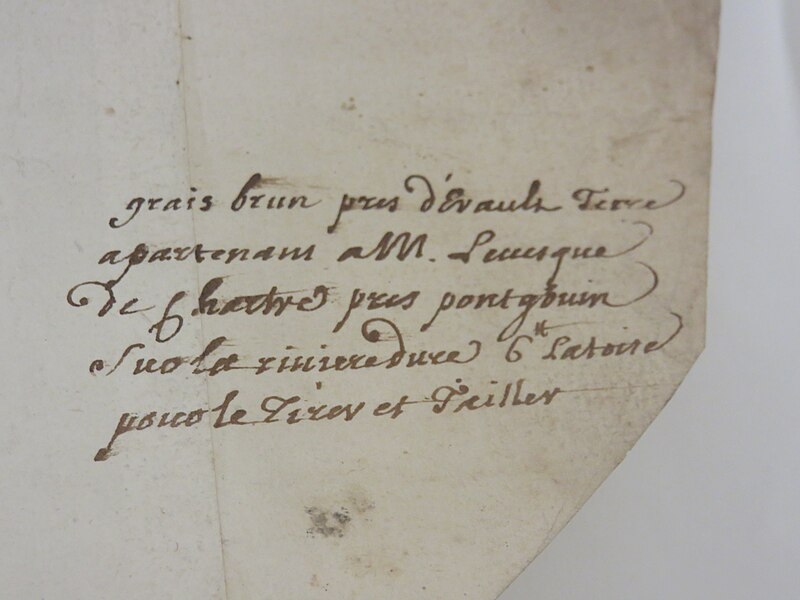 grais brun pres d'Évault Terre
apartenant a M. Levesque
de Chartre pres pontgoüin
sur la riviere dure 6tt La toise
pour le Tirer et Tailler